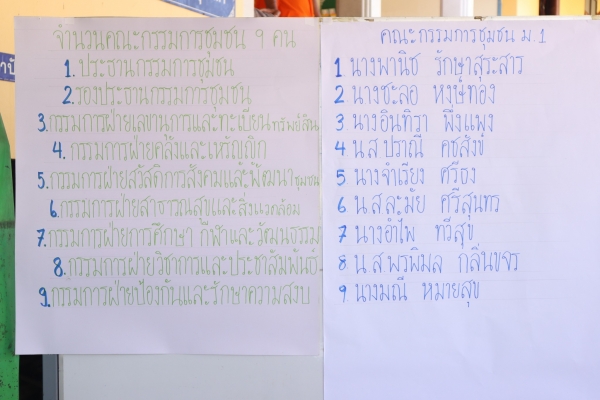 จำนวนคณะกรรมการชุมชน 9 คน
1. ประธานกรรมการชุมชน
2. รองประธานกรรมการชุมชน
3. กรรมการฝ่ายเลขานุการและทะเบียนทรัพย์สิน
4. กรรมการฝ่ายคลังและเหรัญญิก
5. กรรมการฝ่ายสวัสดิการสังคมและพัฒนาชุมชน
6. กรรมการฝ่ายสาธารณสุขและสิ่งแวดล้อม
7. กรรมการฝ่ายการศึกษา กีฬาและวัฒนธรรม
8. กรรมการฝ่ายวิชาการและประชาสัมพันธ์.
9. กรรมการฝ่ายป้องกันและรักษาความสงบ
คณะกรรมการชุมชน ม.1
1 นางพานิช รักษาสุระสาร
2 นางชะลอ หงษ์ทอง
3 นางอินทิรา พึ่งแพง
4 น.ส ปราณี คชสังข์
5 นางจำเรียง ศรีธง
6 น.ส ละมัย ศรีสุนทร
7 นางอำไพ ทวีสุข
8 น.ส.พรพิมล กลิ่นขจร
9 นางมณี หมายสุข